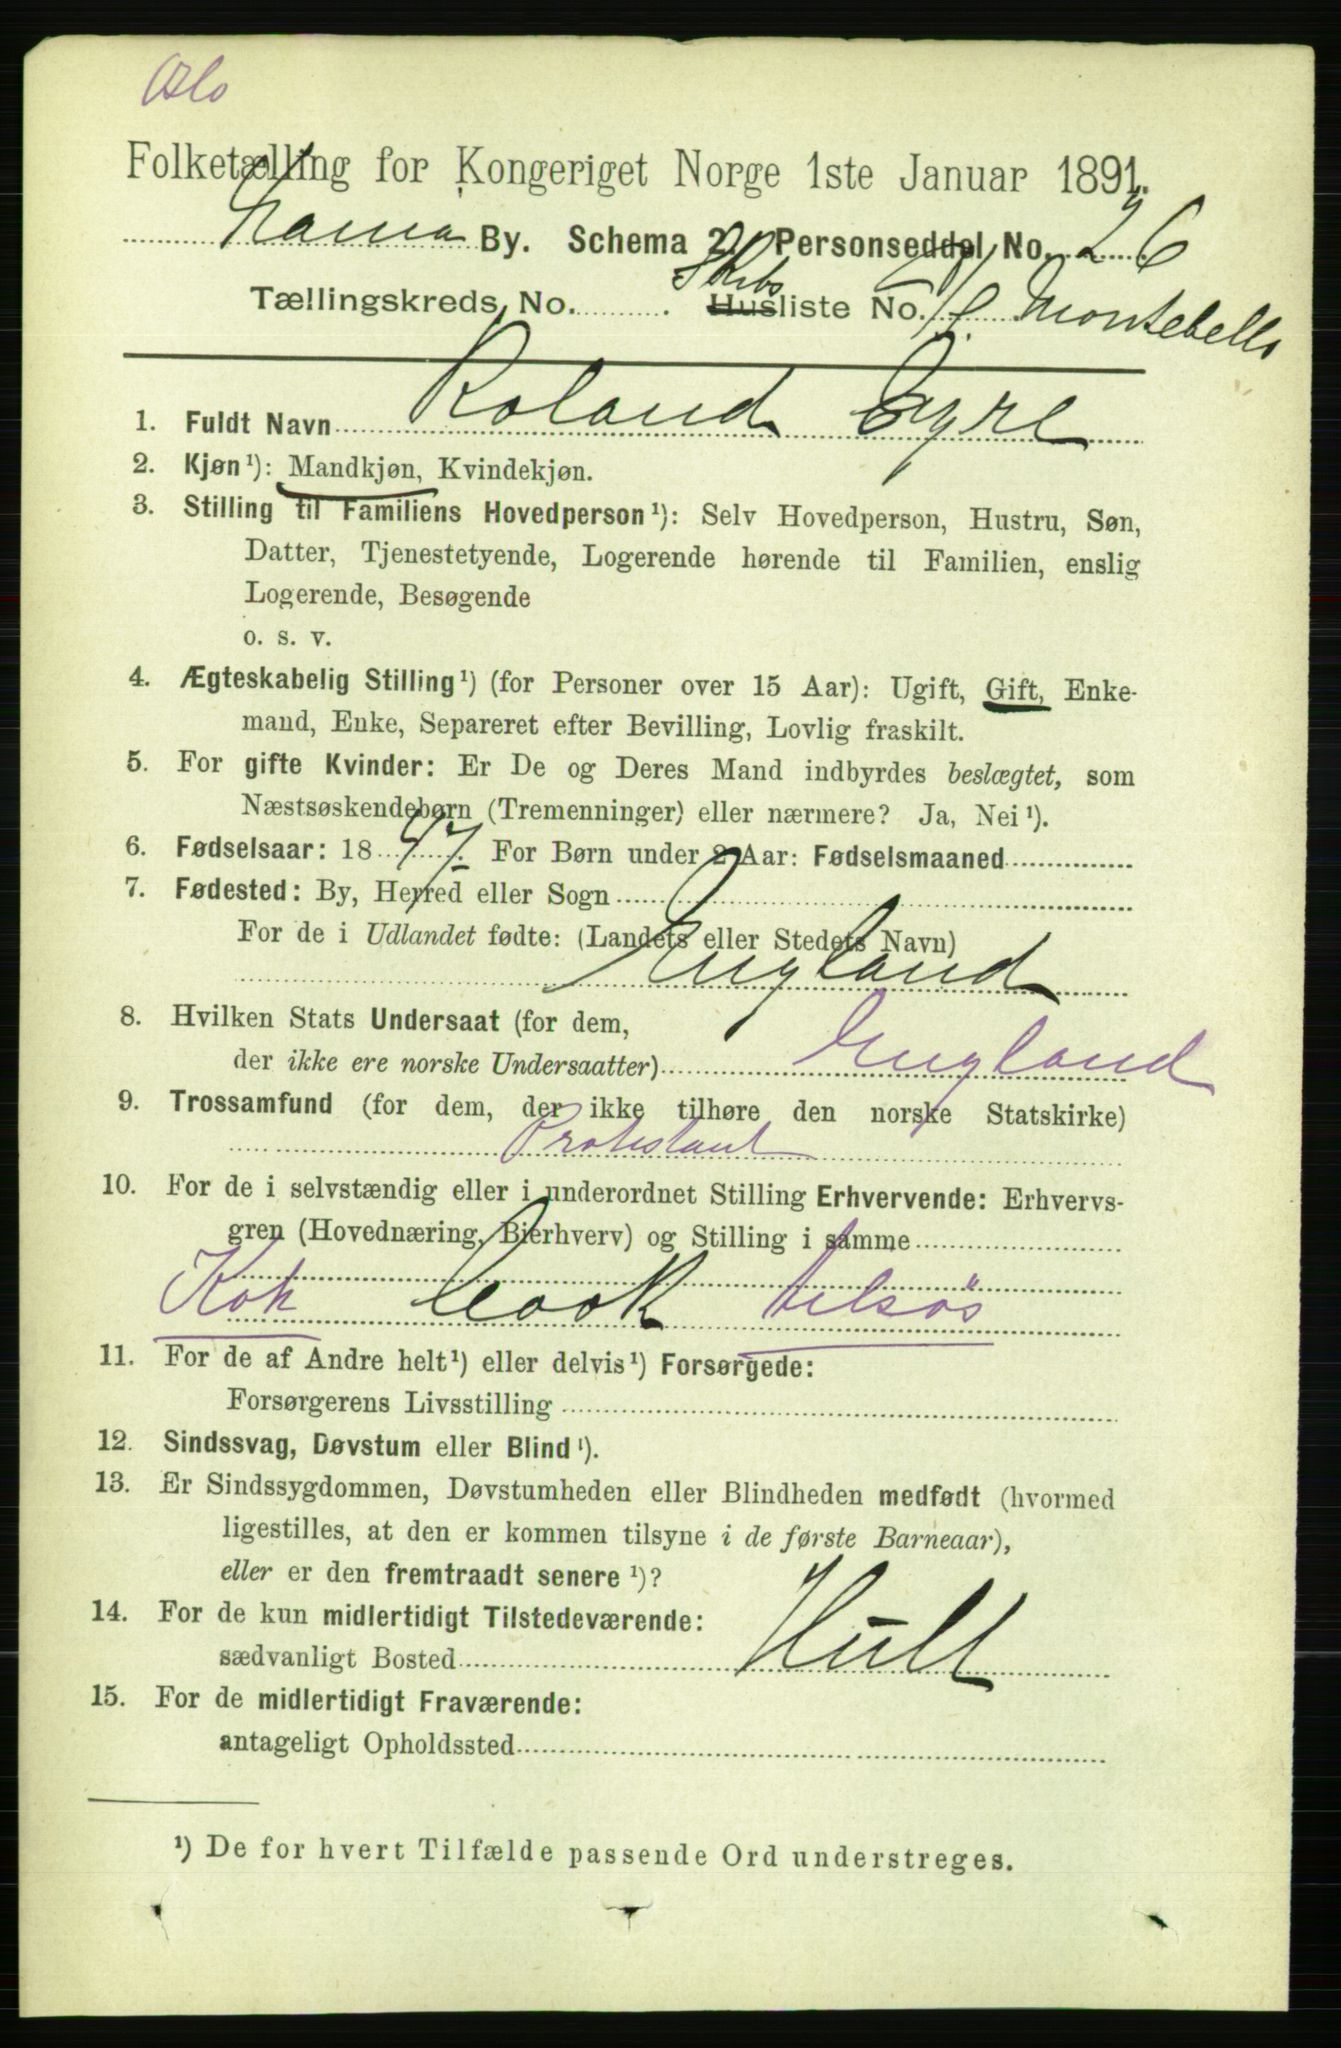 Oslo
Folketælling for Kongeriget Norge 1ste Januar 1891.
By. Schema 2. Personseddel No. 26
Tællingskreds No. Skibs Husliste No. Montebello
1. Fuldt Navn Roland Eyre
2. Kjøn¹): Mandkjøn, Kvindekjøn.
3. Stilling til Familiens Hovedperson¹): Selv Hovedperson, Hustru, Søn,
Datter, Tjenestetyende, Logerende hørende til Familien, enslig
Logerende, Besøgende
o. s. v.
4. Ægteskabelig Stilling¹) (for Personer over 15 Aar): Ugift, Gift, Enke-
mand, Enke, Separeret efter Bevilling, Lovlig fraskilt.
5. For gifte Kvinder: Er De og Deres Mand indbyrdes beslægtet, som
Næstsøskendebørn (Tremenninger) eller nærmere? Ja, Nei¹).
6. Fødselsaar: 1847. For Børn under 2 Aar: Fødselsmaaned
7. Fødested: By, Herred eller Sogn
For de i Udlandet fødte: (Landets eller Stedets Navn)
England
8. Hvilken Stats Undersaat (for dem,
der ikke ere norske Undersaatter) England
9. Trossamfund (for dem, der ikke tilhøre den norske Statskirke)
Protestant
10. For de i selvstændig eller i underordnet Stilling Erhvervende: Erhvervs-
gren (Hovednæring, Bierhverv) og Stilling i samme
Kok Cook
11. For de af Andre helt¹) eller delvis¹) Forsørgede:
Forsørgerens Livsstilling
12. Sindssvag, Døvstum eller Blind¹).
13. Er Sindssygdommen, Døvstumheden eller Blindheden medfødt (hvormed
ligestilles, at den er kommen tilsyne i de første Barneaar),
eller er den fremtraadt senere¹)?
14. For de kun midlertidigt Tilstedeværende:
sædvanligt Bosted Hull
15. For de midlertidigt Fraværende:
antageligt Opholdssted
¹) De for hvert Tilfælde passende Ord understreges.